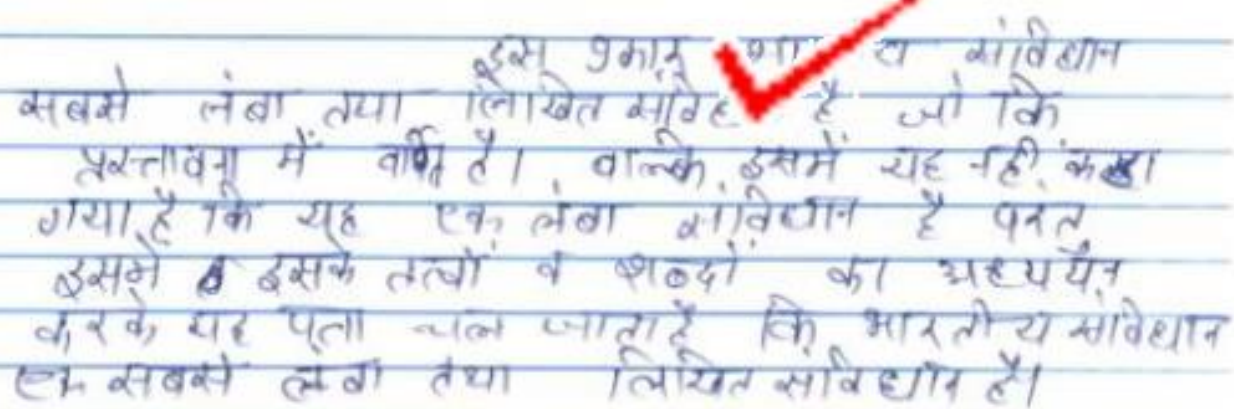 इस प्रकार भा य संविधान
सबसे लंबा तथा लिखित संविध है जो कि
प्रस्तावना में है। बल्कि इसमें यह नहीं कहा
गया है कि यह एक लंबा संविधान है परंतु
इसमें इसके तत्वों व शब्दों का अध्ययन
करके यह पता चल जाता है कि भारतीय संविधान
एक सबसे लंबा तथा लिखित संविधान है।